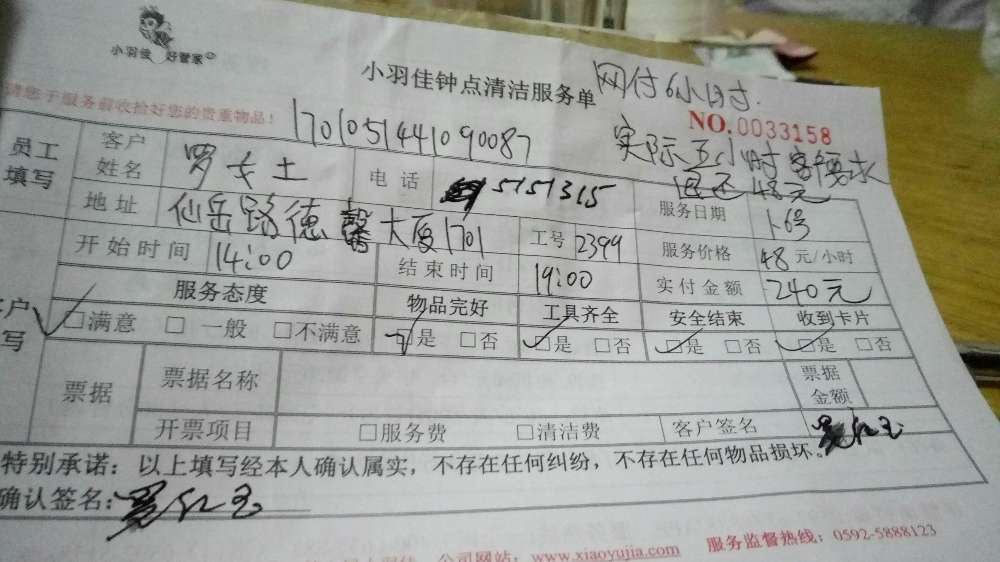 小羽佳 好管家
小羽佳钟点清洁服务单
网付6小时.
请您于服务前收拾好您的贵重物品!
17010514410 90087
NO.0033158
实际五小时
退还48元
员工填写
客户姓名 罗女士 电话 5151315 服务日期 1-6号
地址 仙岳路德馨大厦1701 工号 2399 服务价格 48元/小时
开始时间 14:00 结束时间 19:00 实付金额 240元
服务态度 物品完好 工具齐全 安全结束 收到卡片
□满意 □一般 □不满意 □是 □否 □是 □否 □是 □否 □是 □否
票据 票据名称 票据金额
开票项目 □服务费 □清洁费 客户签名
特别承诺:以上填写经本人确认属实,不存在任何纠纷,不存在任何物品损坏。
确认签名:
公司网站:www.xiaoyujia.com 服务监督热线:0592-5888123